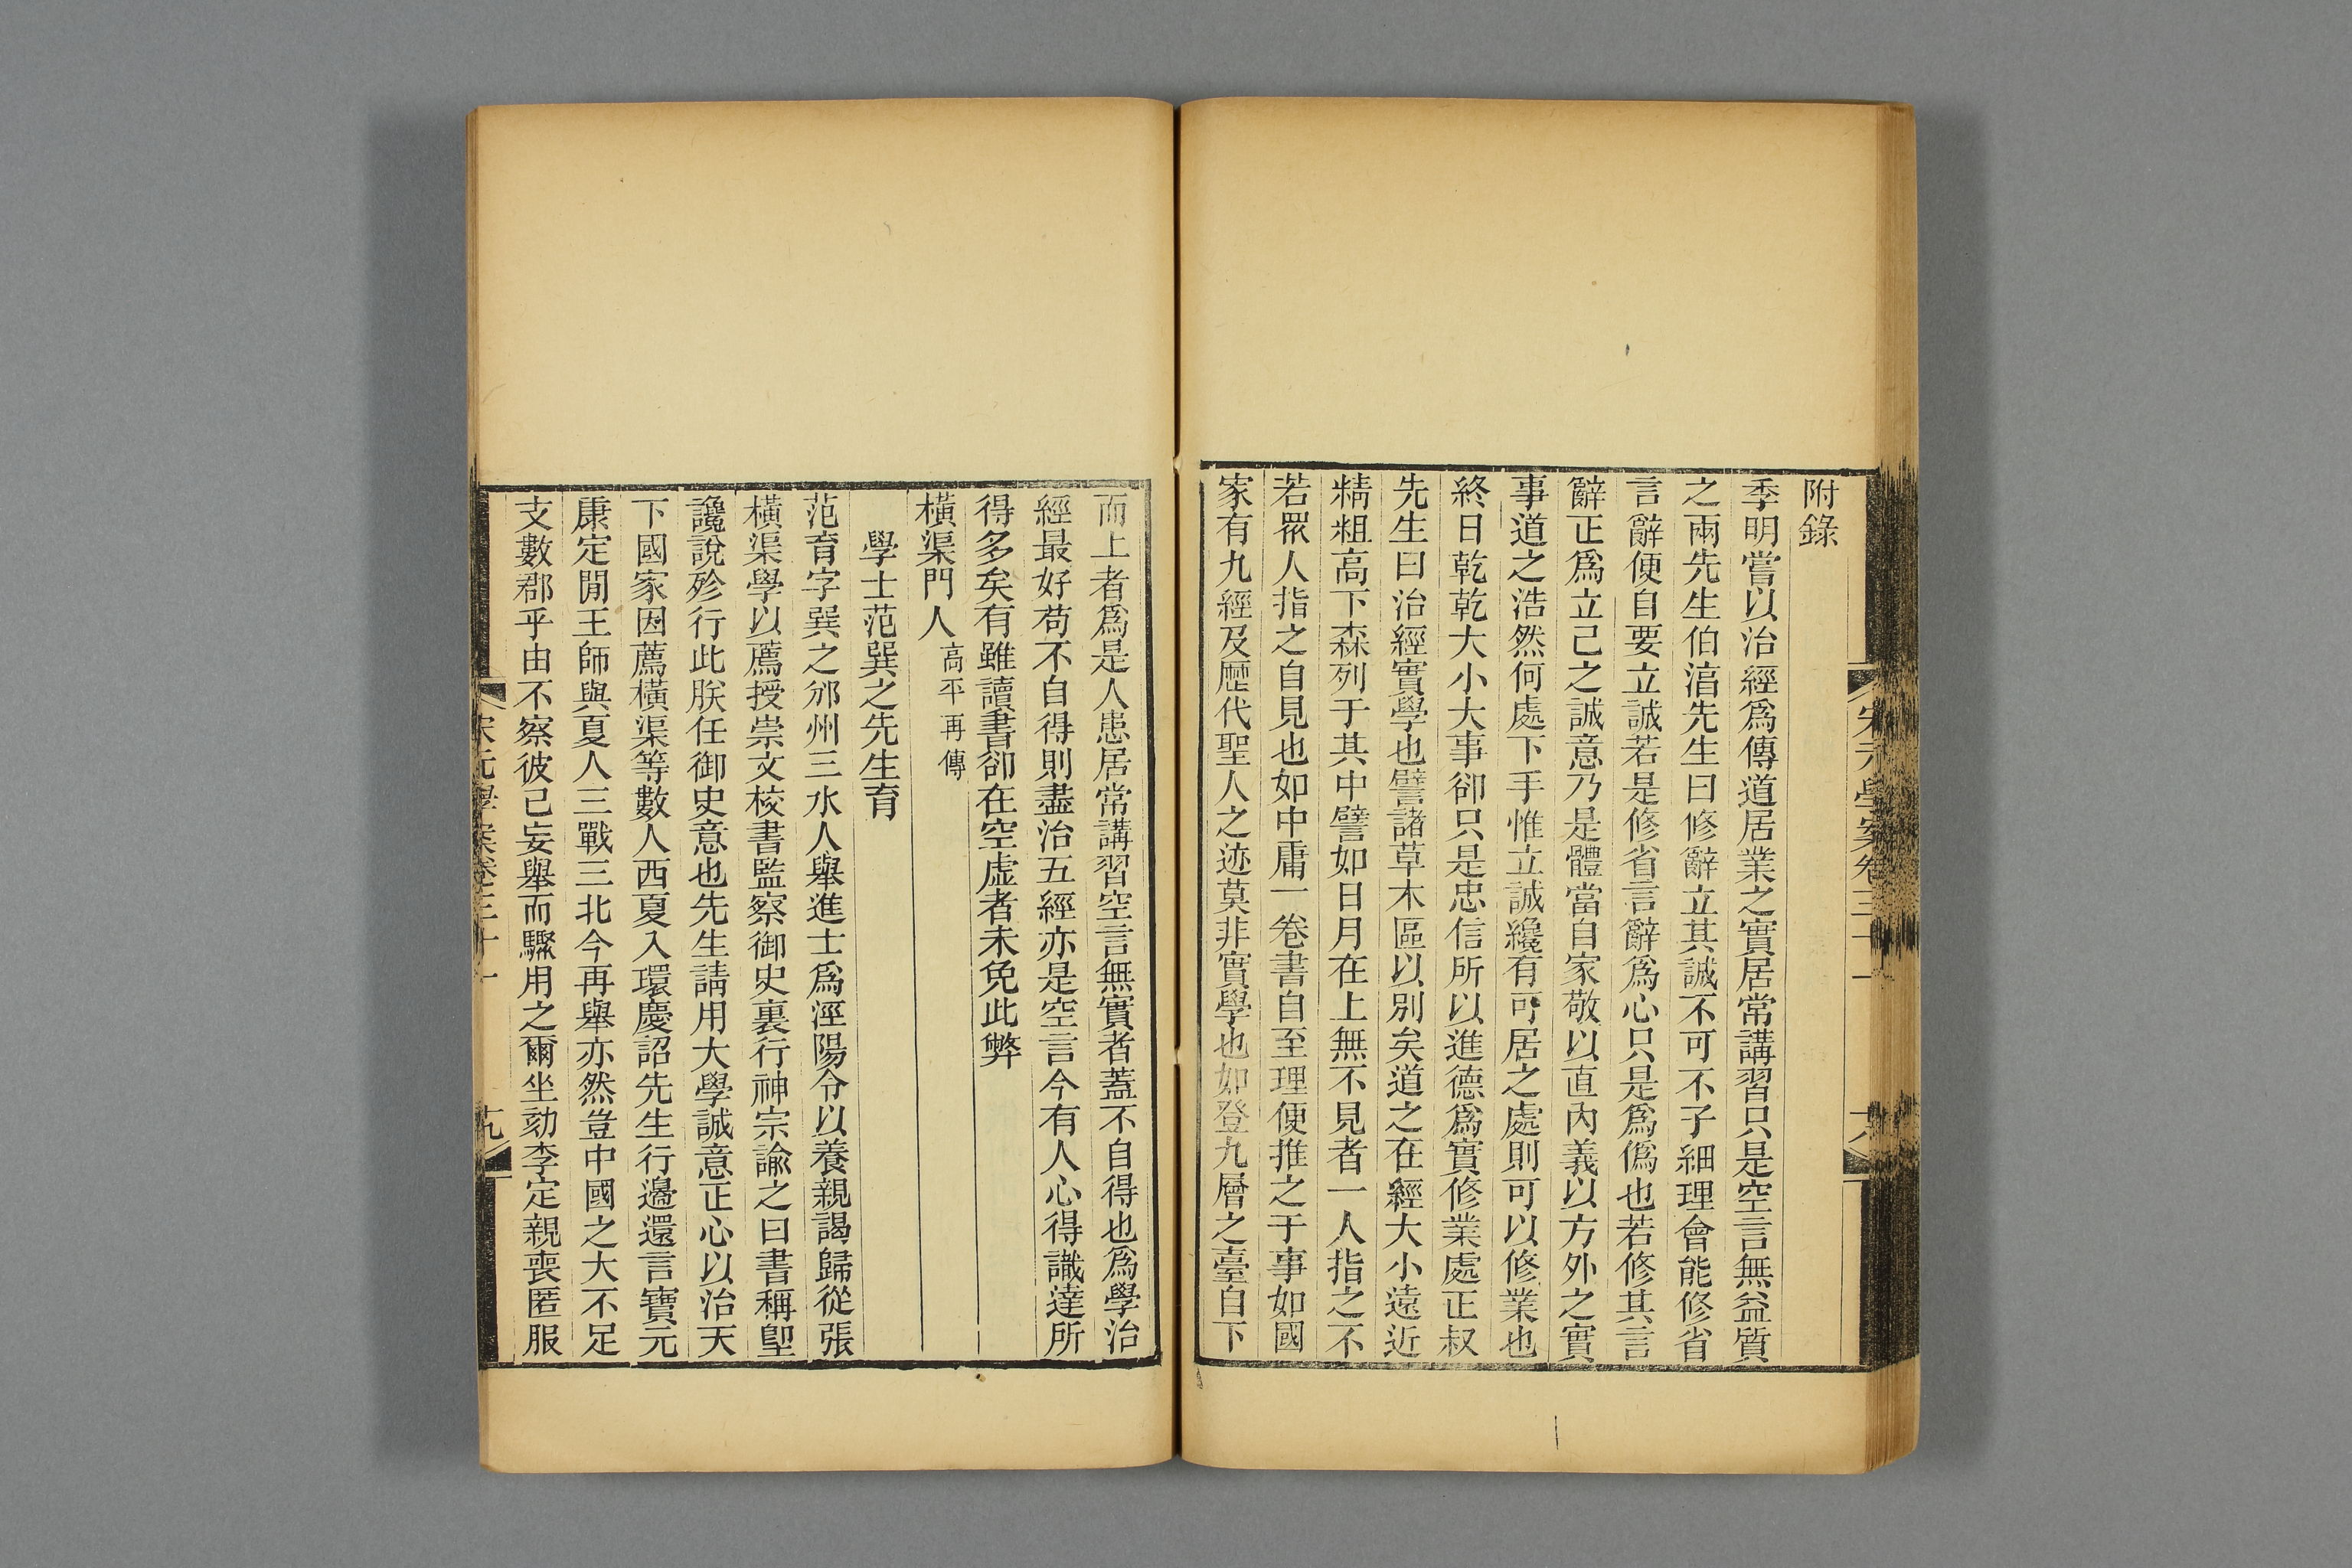 宋元學案卷三十一
附錄
季明嘗以治經爲傳道居業之實居常講習只是空言無益質
之兩先生伯淳先生曰修辭立其誠不可不子細理會能修省
言辭便自要立誠若是修省言辭爲心只是爲僞也若修其言
辭正爲立己之誠意乃是體當自家敬以直內義以方外之實
事道之浩然何處下手惟立誠纔有可居之處則可以修業也
終日乾乾大小大事卻只是忠信所以進德爲實修業處正叔
先生曰治經實學也譬諸草木區以別矣道之在經大小遠近
精粗高下森列于其中譬如日月在上無不見者一人指之不
若眾人指之自見也如中庸一卷書自至理便推之于事如國
家有九經及歷代聖人之迹莫非實學也如登九層之臺自下
而上者爲是人患居常講習空言無實者蓋不自得也爲學治
經最好苟不自得則盡治五經亦是空言今有人心得識達所
得多矣有雖讀書卻在空虛者未免此弊
橫渠門人高平再傳
學士范巽之先生育
范育字巽之邠州三水人舉進士爲涇陽令以養親謁歸從張
橫渠學以薦授崇文校書監察御史裏行神宗諭之曰書稱堲
讒說殄行此朕任御史意也先生請用大學誠意正心以治天
下國家因薦橫渠等數人西夏入環慶詔先生行邊還言寶元
康定閒王師與夏人三戰三北今再舉亦然豈中國之大不足
支數郡乎由不察彼己妄舉而驟用之爾坐劾李定親喪匿服
宋元學案卷三十一
十九